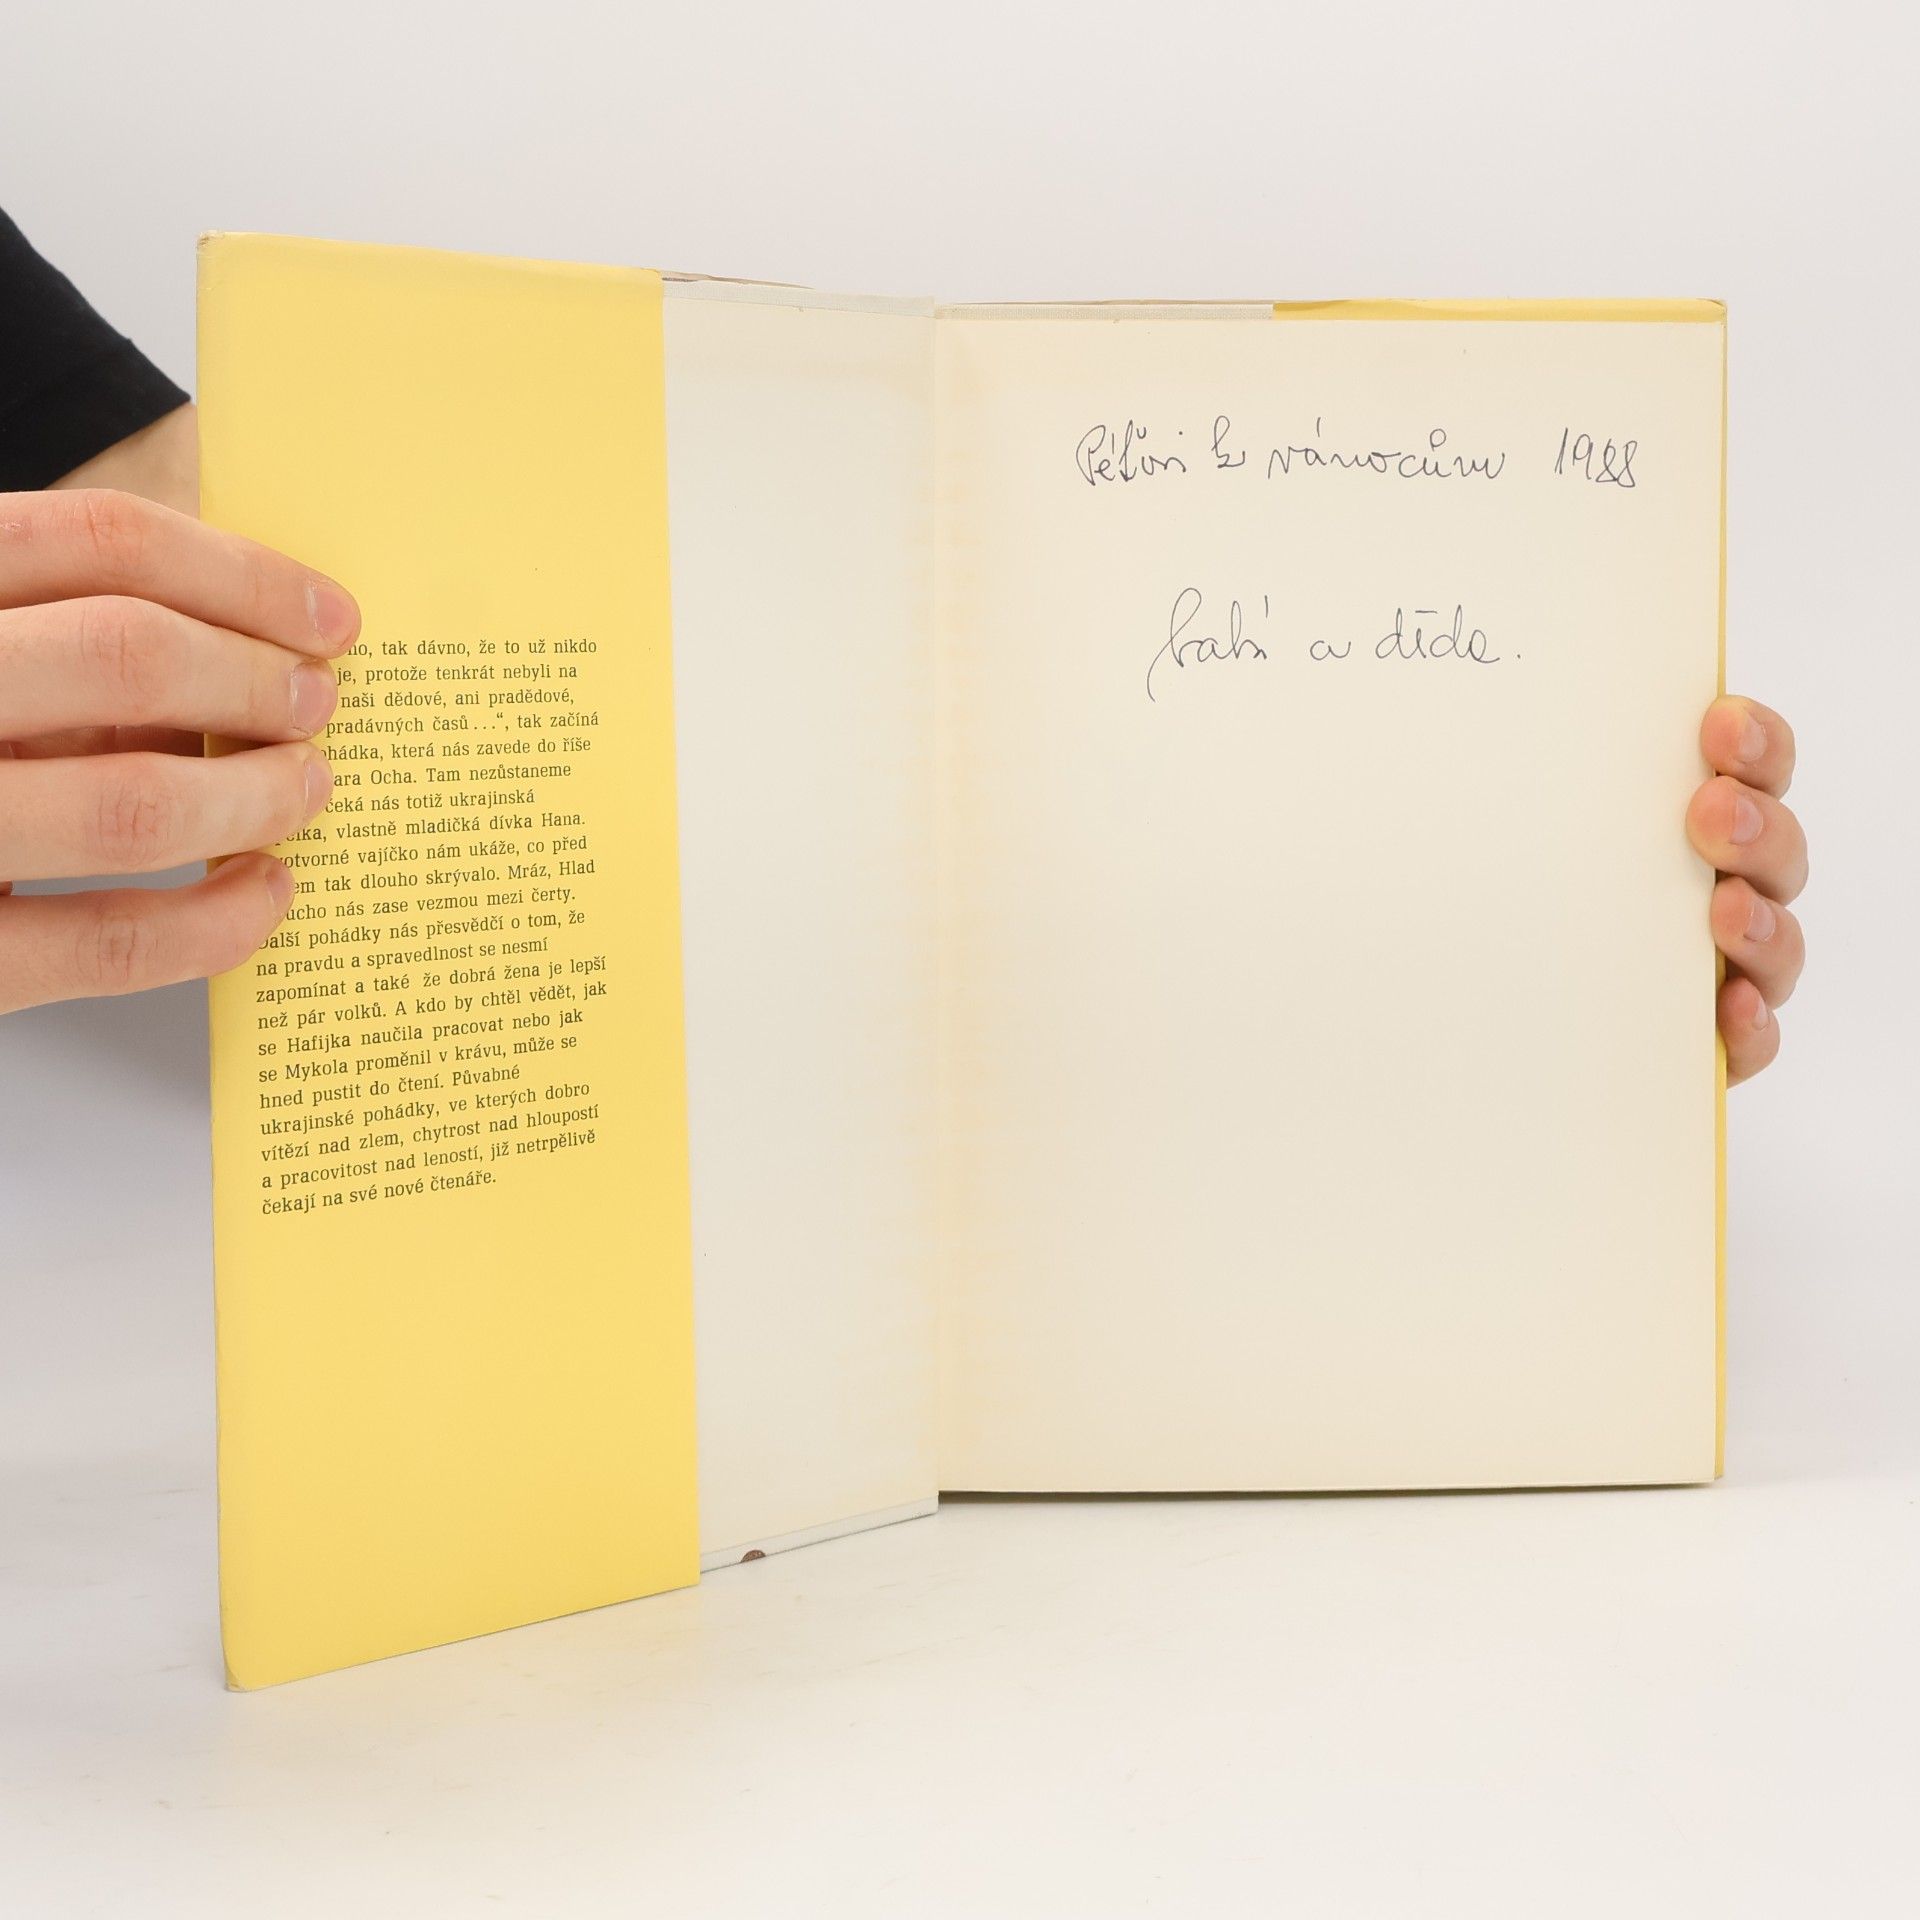 no, tak dávno, že to už nikdo
je, protože tenkrát nebyli na
naši dědové, ani pradědové,
pradávných časů...“, tak začíná
ohádka, která nás zavede do říše
ara Ocha. Tam nezůstaneme
čeká nás totiž ukrajinská
elka, vlastně mladičká dívka Hana.
otvorné vajíčko nám ukáže, co před
em tak dlouho skrývalo. Mráz, Hlad
ucho nás zase vezmou mezi čerty.
Další pohádky nás přesvědčí o tom, že
na pravdu a spravedlnost se nesmí
zapomínat a také že dobrá žena je lepší
než pár volků. A kdo by chtěl vědět, jak
se Hafijka naučila pracovat nebo jak
se Mykola proměnil v krávu, může se
hned pustit do čtení. Půvabné
ukrajinské pohádky, ve kterých dobro
vítězí nad zlem, chytrost nad hloupostí
a pracovitost nad leností, již netrpělivě
čekají na své nové čtenáře.
Péťovi k vánocům 1988
babi a děda.